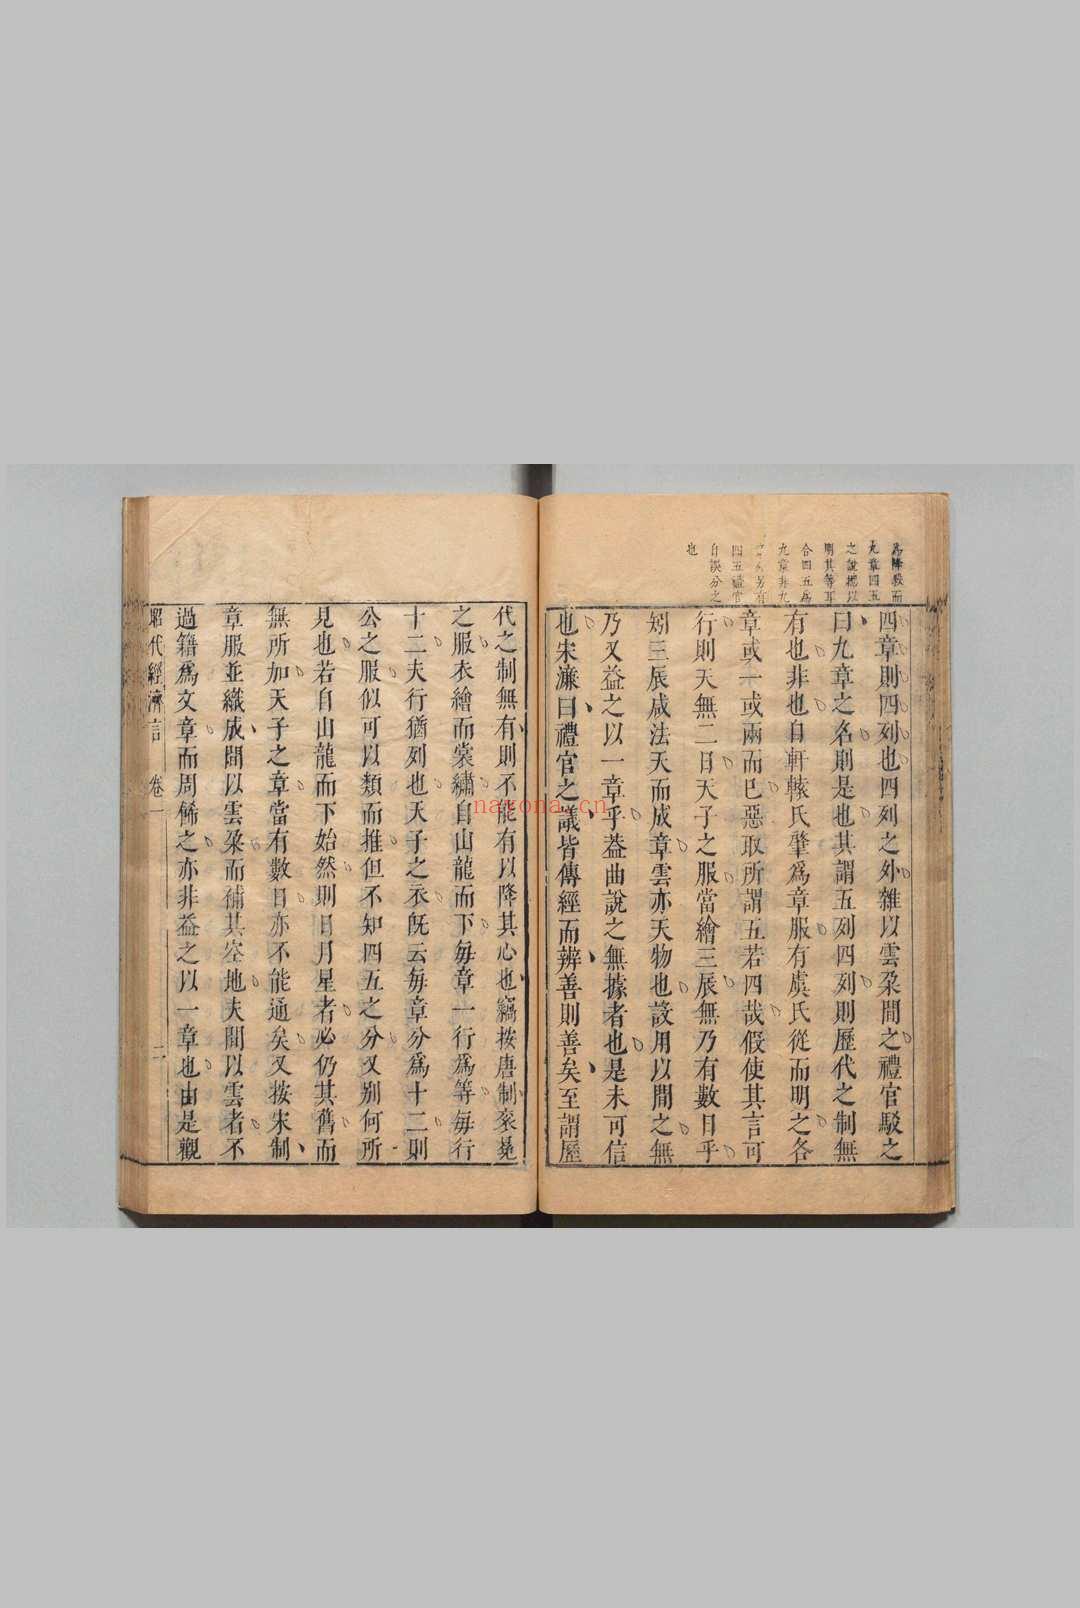 爲降殺而
九章四五
之說槪以
明其等耳
合四五爲
九章非九
章外另有
四五禮官
自誤分之
也
四章則四列也四列之外雜以雲朶間之禮官駁之
曰九章之名則是也其謂五列四列則歷代之制無
有也非也自軒轅氏肇爲章服有虞氏從而明之各
章或一或兩而已惡取所謂五若四哉假使其言可
行則天無二日天子之服當繪三辰無乃有數日乎
矧三辰咸法天而成章雲亦天物也設用以間之無
乃又益之以一章乎葢曲說之無據者也是未可信
也宋濂曰禮官之議皆傳經而辨善則善矣至謂歷
代之制無有則不能有以降其心也竊按唐制衮冕
之服衣繪而裳繡自山龍而下每章一行爲等每行
十二夫行猶列也天子之衣旣云每章分爲十二則
公之服似可以類而推但不知四五之分又别何所
見也若自山龍而下始然則日月星者必仍其舊而
無所加天子之章當有數日亦不能通矣又按宋制
章服並織成間以雲朶而補其空地夫間以雲者不
過籍爲文章而周餙之亦非益之以一章也由是觀
昭代經濟言 卷一 二
nayona.cn